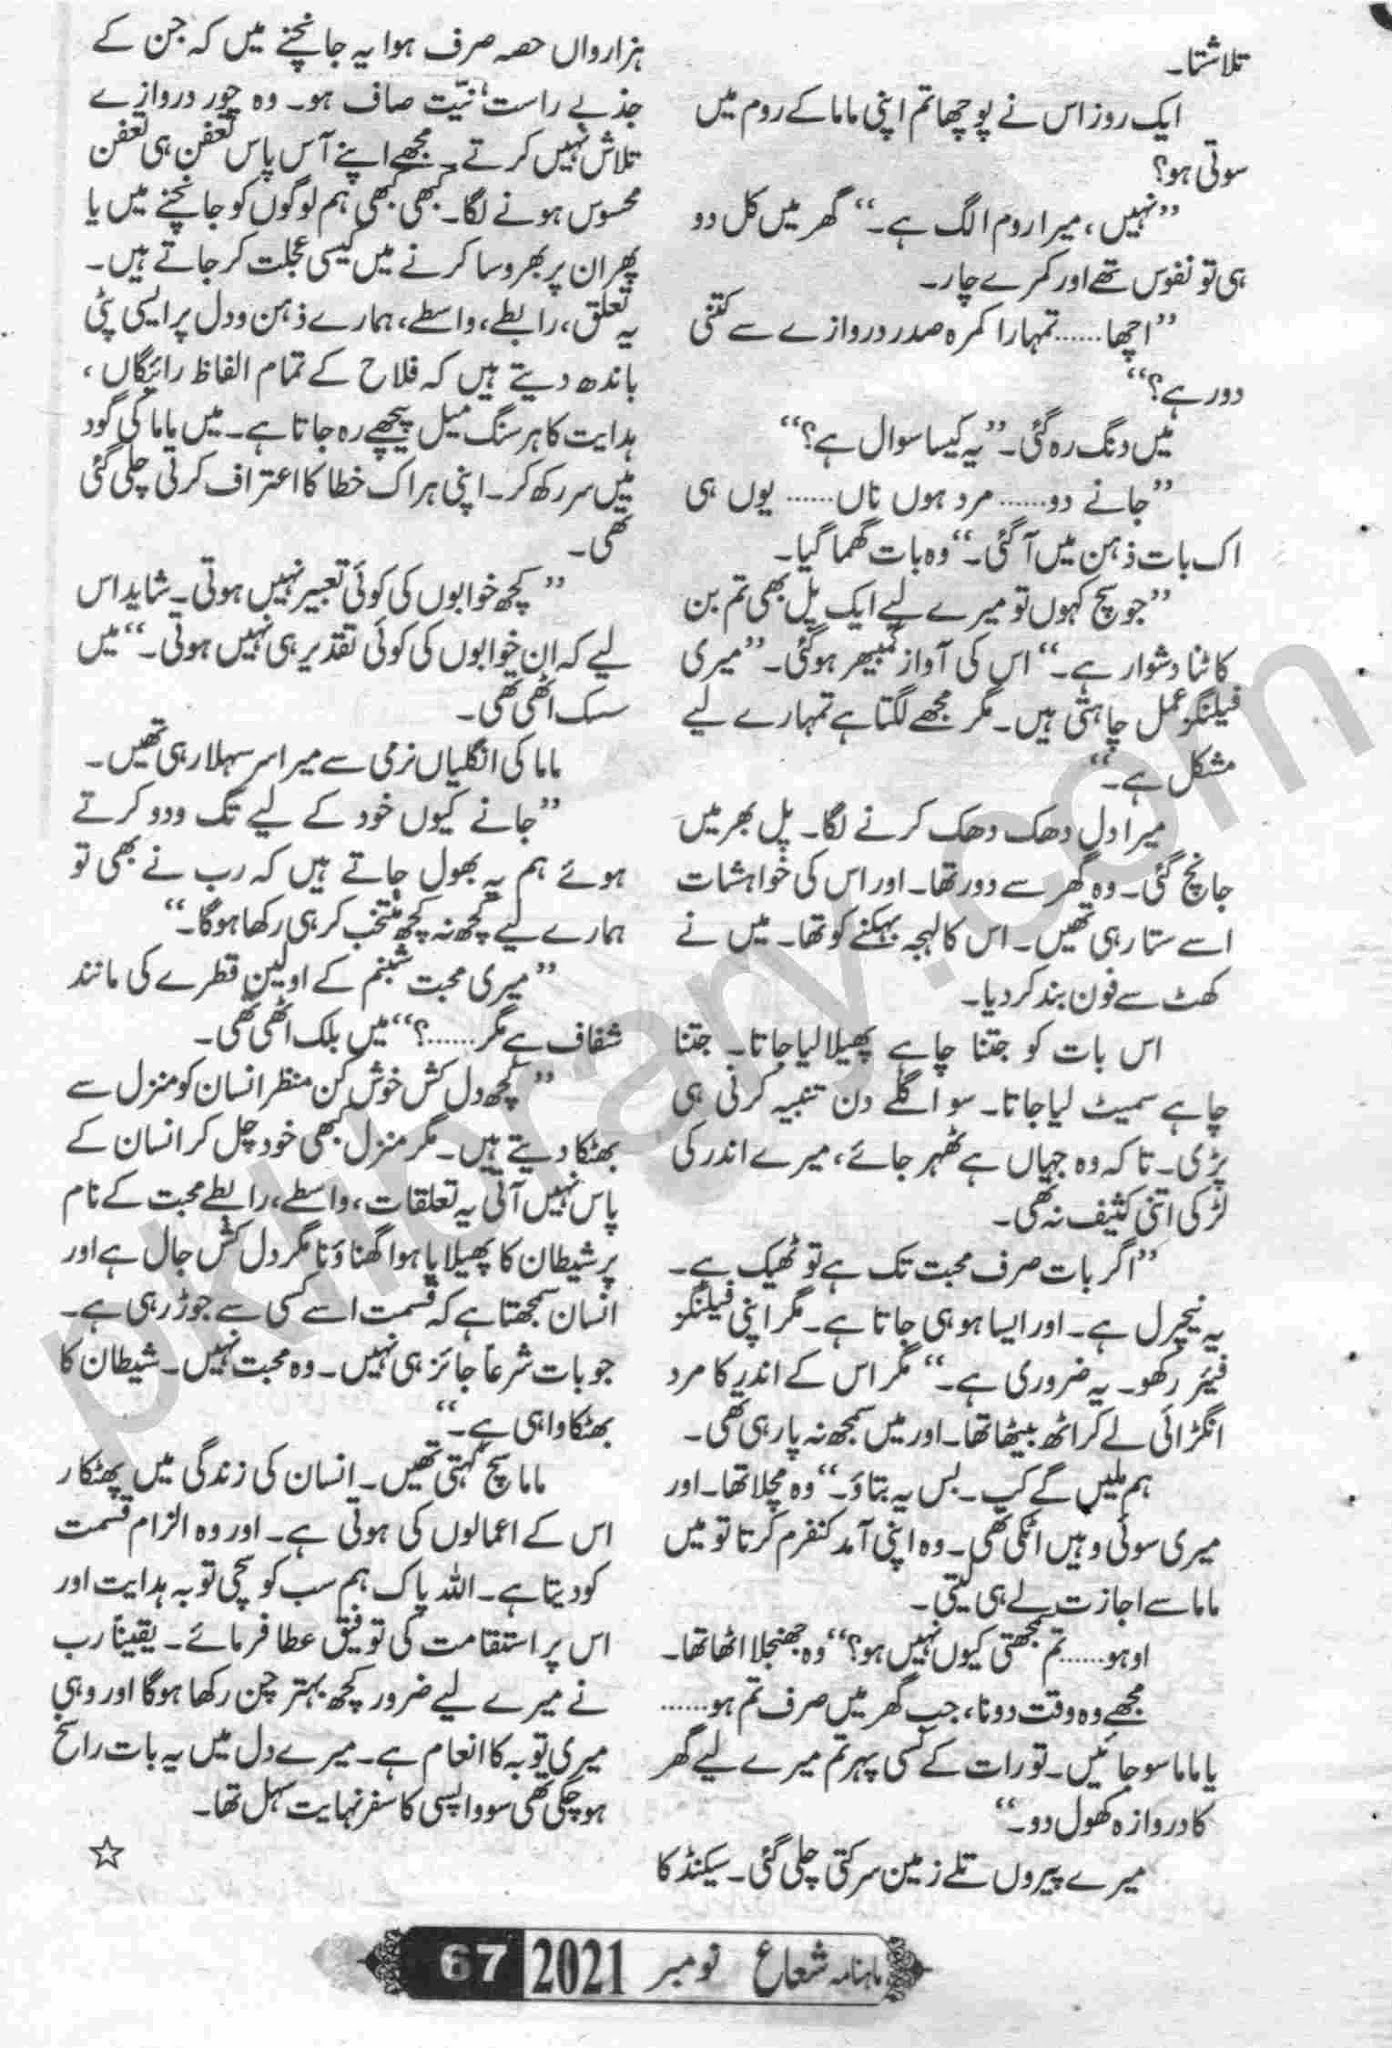 تلاشتا۔
ایک روز اس نے پوچھا تم اپنی ماما کے روم میں
سوتی ہو؟
”نہیں، میرا روم الگ ہے۔“ گھر میں کل دو
ہی تو نفوس تھے اور کمرے چار۔
”اچھا...... تمہارا کمرہ صدر دروازے سے کتنی
دور ہے؟“
میں دنگ رہ گئی۔ ”یہ کیسا سوال ہے؟“
”جانے دو...... مرد ہوں ناں...... یوں ہی
اک بات ذہن میں آ گئی۔“ وہ بات گھما گیا۔
”جو سچ کہوں تو میرے لیے ایک پل بھی تم بن
کاٹنا دشوار ہے۔“ اس کی آواز گمبھیر ہو گئی۔ ”میری
فیلنگز عمل چاہتی ہیں۔ مگر مجھے لگتا ہے تمہارے لیے
مشکل ہے۔“
میرا دل دھک دھک کرنے لگا۔ پل بھر میں
جانچ گئی۔ وہ گھر سے دور تھا۔ اور اس کی خواہشات
اسے ستا رہی تھیں۔ اس کا لہجہ بہکنے کو تھا۔ میں نے
کھٹ سے فون بند کر دیا۔
اس بات کو جتنا چاہے پھیلا لیا جاتا۔ جتنا
چاہے سمیٹ لیا جاتا۔ سو اگلے دن تنبیہ کرنی ہی
پڑی۔ تاکہ وہ جہاں ہے ٹھہر جائے، میرے اندر کی
لڑکی اتنی کثیف نہ تھی۔
”اگر بات صرف محبت تک ہے تو ٹھیک ہے۔
یہ نیچرل ہے۔ اور ایسا ہو ہی جاتا ہے۔ مگر اپنی فیلنگز
فیئر رکھو۔ یہ ضروری ہے۔“ مگر اس کے اندر کا مرد
انگڑائی لے کر اٹھ بیٹھا تھا۔ اور میں سمجھ نہ پا رہی تھی۔
ہم ملیں گے کب۔ بس یہ بتاؤ۔“ وہ مچلا تھا۔ اور
میری سوئی وہیں اٹکی تھی۔ وہ اپنی آمد کنفرم کرتا تو میں
ماما سے اجازت لے ہی لیتی۔
اوہو...... تم سمجھتی کیوں نہیں ہو؟“ وہ جھنجلا اٹھا تھا۔
مجھے وہ وقت دو نا، جب گھر میں صرف تم ہو......
یا ماما سو جائیں۔ تو رات کے کسی پہر تم میرے لیے گھر
کا دروازہ کھول دو۔“
میرے پیروں تلے زمین سرکتی چلی گئی۔ سیکنڈ کا
ہزارواں حصہ صرف ہوا یہ جانچنے میں کہ جن کے
جذبے راست، نیّت صاف ہو۔ وہ چور دروازے
تلاش نہیں کرتے۔ مجھے اپنے آس پاس تعفن ہی تعفن
محسوس ہونے لگا۔ کبھی کبھی ہم لوگوں کو جانچنے میں یا
پھر ان پر بھروسا کرنے میں کیسی عجلت کر جاتے ہیں۔
یہ تعلق، رابطے، واسطے، ہمارے ذہن و دل پر ایسی پٹی
باندھ دیتے ہیں کہ فلاح کے تمام الفاظ رائیگاں،
ہدایت کا ہر سنگ میل پیچھے رہ جاتا ہے۔ میں ماما کی گود
میں سر رکھ کر۔ اپنی ہر اک خطا کا اعتراف کرتی چلی گئی
تھی۔
”کچھ خوابوں کی کوئی تعبیر نہیں ہوتی۔ شاید اس
لیے کہ ان خوابوں کی کوئی تقدیر ہی نہیں ہوتی۔“ میں
سسک اٹھی تھی۔
ماما کی انگلیاں نرمی سے میرا سر سہلا رہی تھیں۔
”جانے کیوں خود کے لیے تگ و دو کرتے
ہوئے ہم یہ بھول جاتے ہیں کہ رب نے بھی تو
ہمارے لیے کچھ نہ کچھ منتخب کر ہی رکھا ہو گا۔“
”میری محبت شبنم کے اولین قطرے کی مانند
شفاف ہے مگر......؟“ میں بلک اٹھی تھی۔
”کچھ دل کش خوش کن منظر انسان کو منزل سے
بھٹکا دیتے ہیں۔ مگر منزل کبھی خود چل کر انسان کے
پاس نہیں آتی یہ تعلقات، واسطے، رابطے محبت کے نام
پر شیطان کا پھیلایا ہوا گھناؤنا مگر دل کش جال ہے اور
انسان سمجھتا ہے کہ قسمت اسے کسی سے جوڑ رہی ہے۔
جو بات شرعاً جائز ہی نہیں۔ وہ محبت نہیں۔ شیطان کا
بھٹکاوا ہی ہے۔“
ماما سچ کہتی تھیں۔ انسان کی زندگی میں پھٹکار
اس کے اعمالوں کی ہوتی ہے۔ اور وہ الزام قسمت
کو دیتا ہے۔ اللہ پاک ہم سب کو سچی توبہ ہدایت اور
اس پر استقامت کی توفیق عطا فرمائے۔ یقیناً رب
نے میرے لیے ضرور کچھ بہتر چن رکھا ہو گا اور وہی
میری توبہ کا انعام ہے۔ میرے دل میں یہ بات راسخ
ہو چکی تھی سو واپسی کا سفر نہایت سہل تھا۔
☆
ماہنامہ شعاع نومبر 2021 67
pklibrary.com